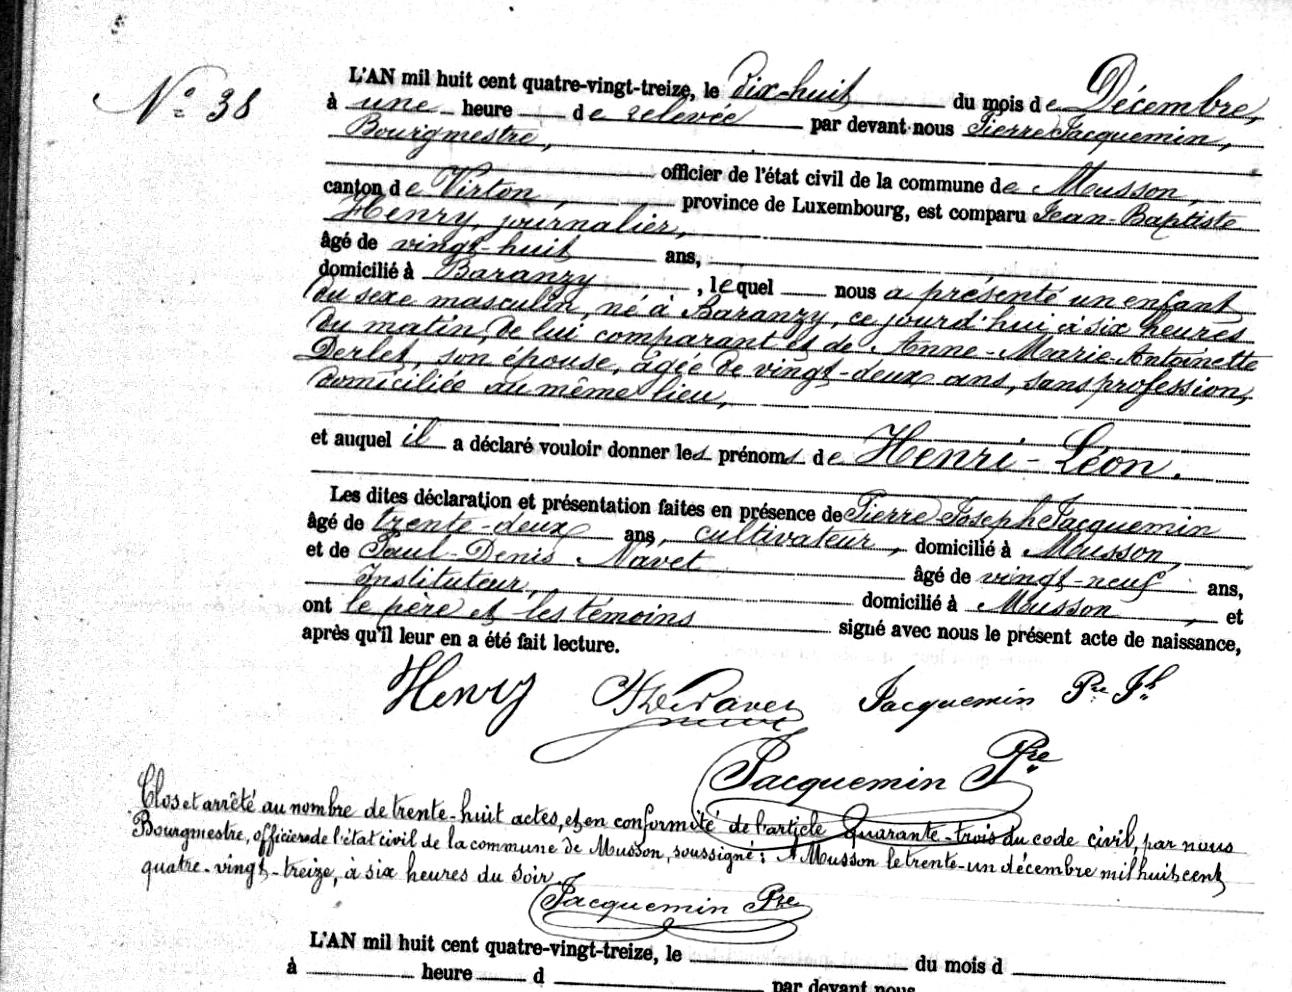 N° 38
L'AN mil huit cent quatre-vingt-treize, le dix-huit du mois de Décembre,
à une heure de relevée par devant nous Pierre Jacquemin,
Bourgmestre,
officier de l'état civil de la commune de Musson,
canton de Virton, province de Luxembourg, est comparu Jean-Baptiste
Henry, journalier,
âgé de vingt-huit ans,
domicilié à Baranzy, lequel nous a présenté un enfant
du sexe masculin, né à Baranzy, ce jourd'hui à six heures
du matin, de lui comparant et de Anne-Marie-Antoinette
Derlet, son épouse, âgée de vingt-deux ans, sans profession,
domiciliée au même lieu,
et auquel il a déclaré vouloir donner les prénoms de Henri-Léon.
Les dites déclaration et présentation faites en présence de Pierre Joseph Jacquemin
âgé de trente-deux ans, cultivateur, domicilié à Musson,
et de Paul-Denis Navet âgé de vingt-neuf ans,
Instituteur, domicilié à Musson, et
ont le père et les témoins signé avec nous le présent acte de naissance,
après qu'il leur en a été fait lecture.
Henry Jacquemin Pre Jh
Jacquemin Pre
Clos et arrêté au nombre de trente-huit actes, et en conformité de l'article quarante-trois du code civil, par nous
Bourgmestre, officier de l'état civil de la commune de Musson, soussigné: A Musson le trente-un décembre mil huit cent
quatre-vingt-treize, à six heures du soir.
Jacquemin Pre
L'AN mil huit cent quatre-vingt-treize, le du mois d
à heure d
par devant nous